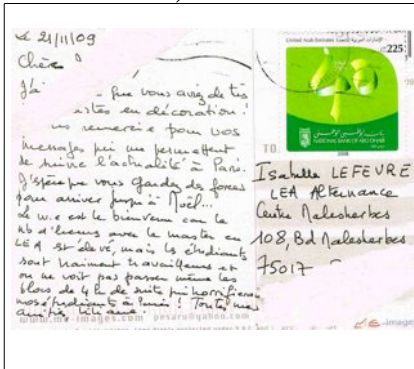 Le 21/11/09
Chère
J'ai que vous avez de très
en décoration !
remercie pour vos
messages qui me permettent
de suivre l'actualité à Paris.
J'espère que vous gardez des forces
pour arriver jusqu'à Noël...
Le w.e est le bienvenu car le
nb d'heures avec le master en
LEA est élevé, mais les étudiants
sont vraiment travailleurs et
on ne voit pas passer même les
blocs de 4h de suite qui horrifieraient
nos étudiants à Paris ! Toutes mes
amitiés
www.mv-images.com pesaro@yahoo.com
United Arab Emirates
225
NATIONAL BANK OF ABU DHABI
2008
TO
Isabelle LEFEVRE
LEA Alternance
Centre Malesherbes
108, Bd Malesherbes
75017